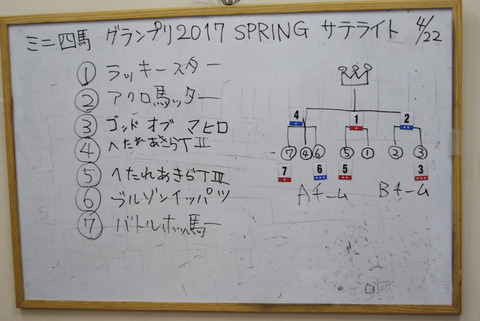 ミニ四馬 グランプリ2017 SPRING サテライト 4/22
① ラッキースター
② アクロ馬ッター
③ ゴッドオブマヒロ
④ へたれあきらTⅡ
⑤ へたれあきらTⅢ
⑥ ブルゾンイッパツ
⑦ バトルホッ馬ー
4 1 2
⑦ ④ ⑥ ⑤ ① ② ③
7 6 5 3
Aチーム Bチーム